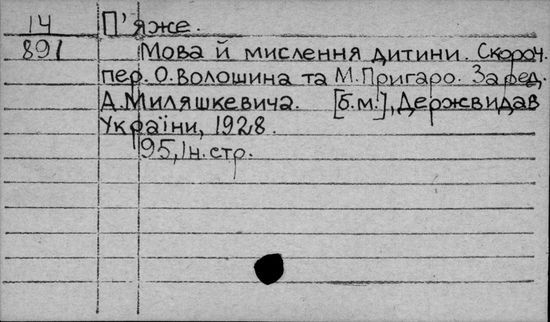 14 П'яже.
891 Мова й мислення дитини. Скороч.
пер. О.Волошина та М.Пригаро. За ред.
А.Миляшкевича. [б.м.], Держвидав
України, 1928.
95, Iн.стр.